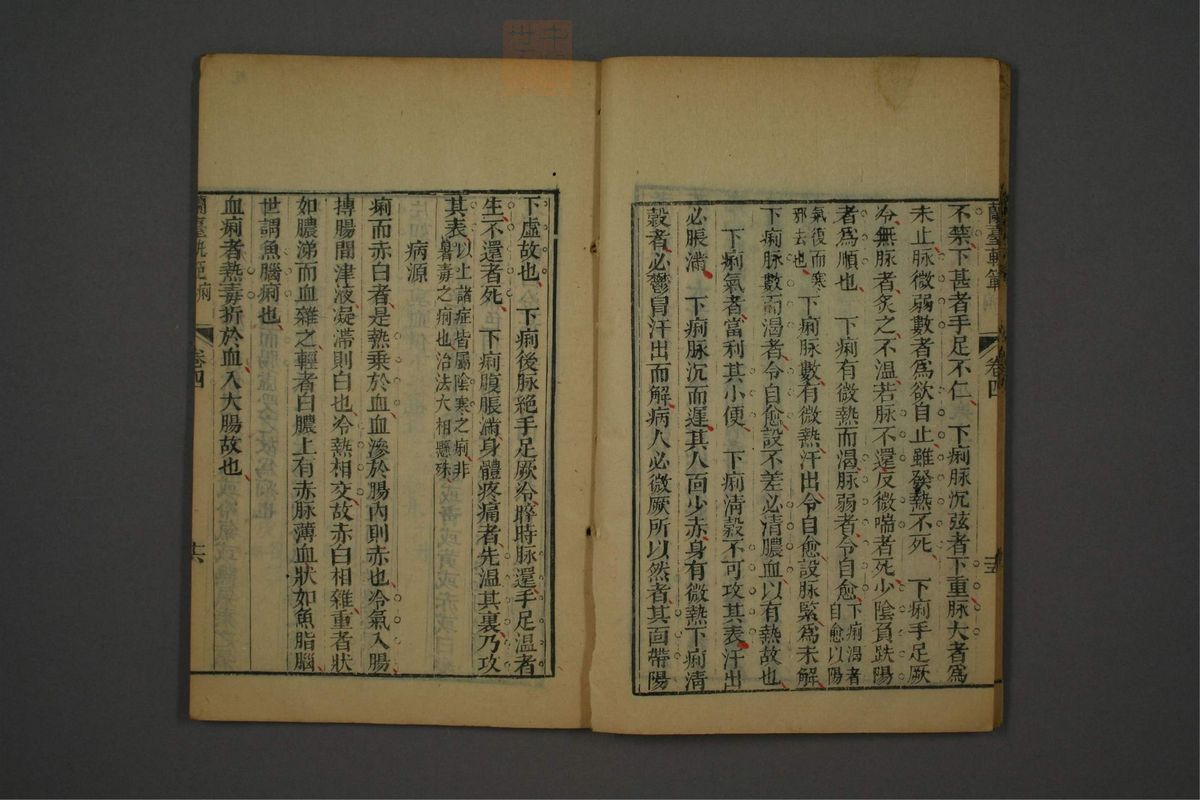 蘭臺軌範 卷四 十五
不禁下甚者手足不仁 下痢脉沉弦者下重脉大者爲
未止脉微弱數者爲欲自止雖發熱不死 下痢手足厥
冷無脉者炙之不温若脉不還反微喘者死少陰負趺陽
者爲順也 下痢有微熱而渴脉弱者令自愈下痢渴者自愈以陽
氣復而寒邪去也 下痢脉數有微熱汗出令自愈設脉緊爲未解
下痢脉數而渴者令自愈設不差必清膿血以有熱故也
下痢氣者當利其小便 下痢清穀不可攻其表汗出
必脹滿 下痢脉沉而遲其人面少赤身有微熱下痢清
穀者必鬱冒汗出而解病人必微厥所以然者其面帶陽
下虛故也 下痢後脉絕手足厥冷晬時脉還手足温者
生不還者死 下痢腹脹滿身體疼痛者先温其裏乃攻
其表以上諸症皆屬陰寒之痢非暑毒之痢也治法大相懸殊
病源
痢而赤白者是熱乘於血血滲於腸內則赤也冷氣入腸
搏腸間津液凝滯則白也冷熱相交故赤白相雜重者狀
如膿涕而血雜之輕者白膿上有赤脉薄血狀如魚脂腦
世謂魚腦痢也
血痢者熱毒折於血入大腸故也
蘭臺軌範 痢 卷四 十六